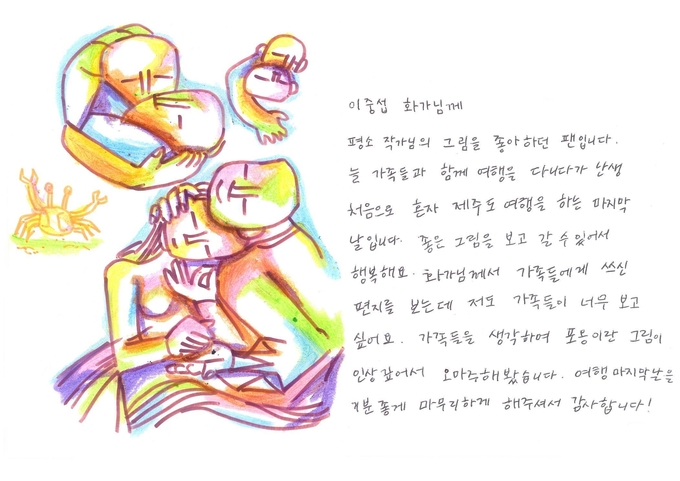 이중섭 화가님께
평소 작가님의 그림을 좋아하던 팬입니다.
늘 가족들과 함께 여행을 다니다가 난생
처음으로 혼자 제주도 여행을 하는 마지막
날입니다. 좋은 그림을 보고 갈 수 있어서
행복해요. 화가님께서 가족들에게 쓰신
편지를 보는데 저도 가족들이 너무 보고
싶어요. 가족들을 생각하며 포옹이란 그림이
인상 깊어서 오마주해 봤습니다. 여행 마지막날을
기분 좋게 마무리하게 해주셔서 감사합니다!